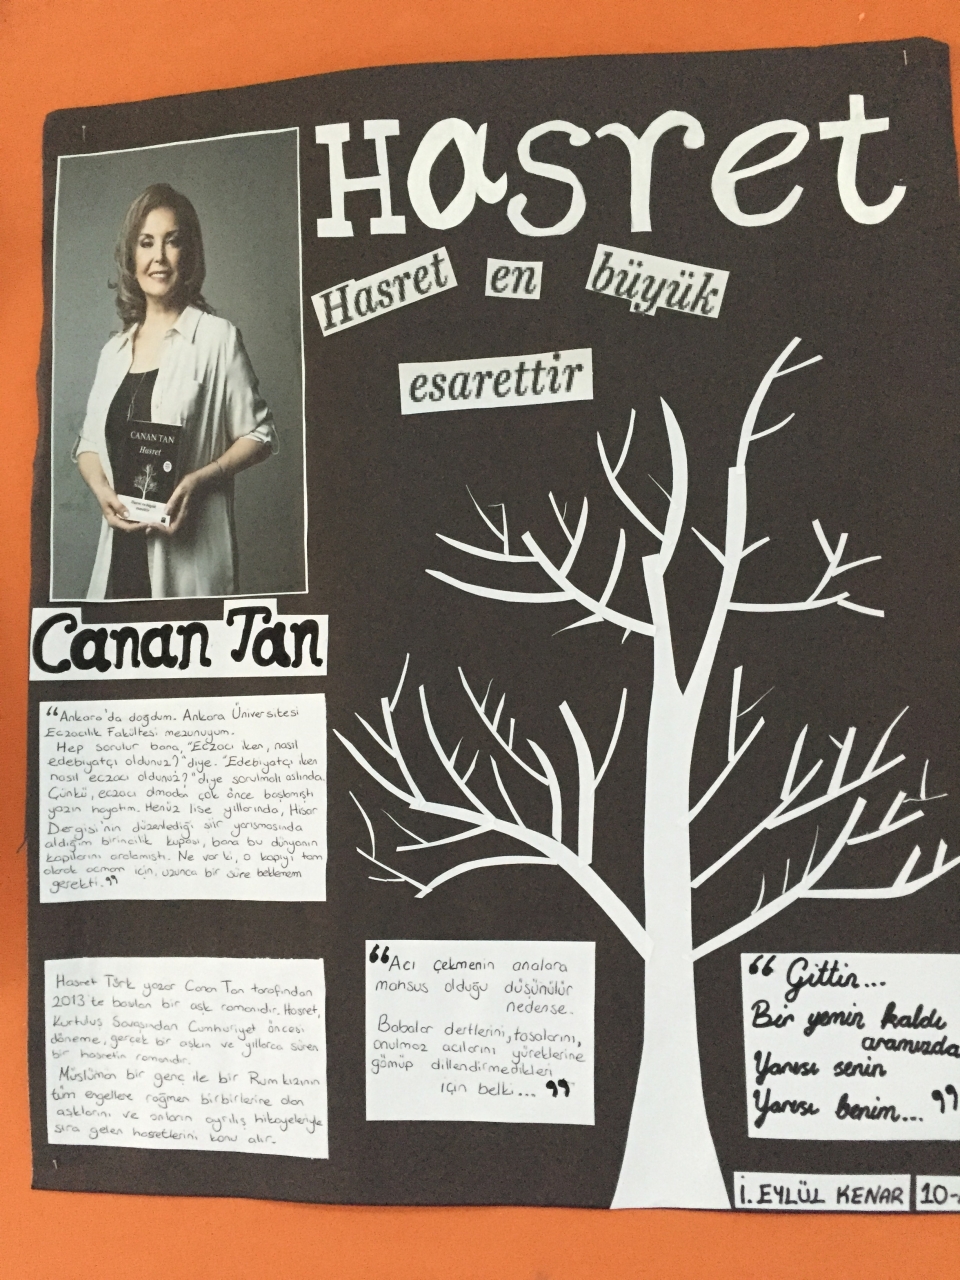 Hasret
Hasret en büyük
esarettir
CANAN TAN
Hasret
Canan Tan
“Ankara'da doğdum. Ankara Üniversitesi
Eczacılık Fakültesi mezunuyum.
Hep sorulur bana, "Eczacı iken, nasıl
edebiyatçı oldunuz?" diye. "Edebiyatçı iken
nasıl eczacı oldunuz?" diye sorulmalı aslında.
Çünkü, eczacı olmadan çok önce başlamıştı
yazın hayatım. Henüz lise yıllarında, Hisar
Dergisi'nin düzenlediği şiir yarışmasında
aldığım birincilik kupası, bana bu dünyanın
kapılarını aralamıştı. Ne var ki, o kapıyı tam
olarak açmam için, uzunca bir süre beklemem
gerekti.”
Hasret Türk yazar Canan Tan tarafından
2013'te basılan bir aşk romanıdır. Hasret,
Kurtuluş Savaşından Cumhuriyet öncesi
döneme, gerçek bir aşkın ve yıllarca süren
bir hasretin romanıdır.
Müslüman bir genç ile bir Rum kızının
tüm engellere rağmen birbirlerine olan
aşklarını ve onların ayrılış hikayeleriyle
sıra gelen hasretlerini konu alır.
“Acı çekmenin analara
mahsus olduğu düşünülür
nedense.
Babalar dertlerini, tasalarını,
onulmaz acılarını yüreklerine
gömüp dillendirmedikleri
için belki... ”
“ Gittin...
Bir yemin kaldı
aramızda
Yarısı senin
Yarısı benim... ”
İ. EYLÜL KENAR 10-